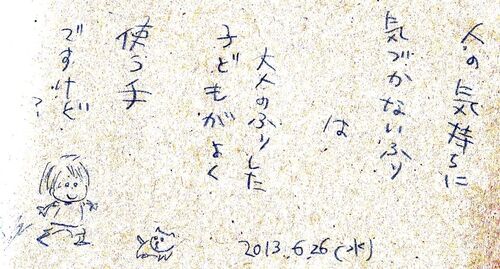 人の気持ちに
気づかないふり
は
大人のふりした
子どもがよく
使う手
ですけど
?
2013.6.26(水)